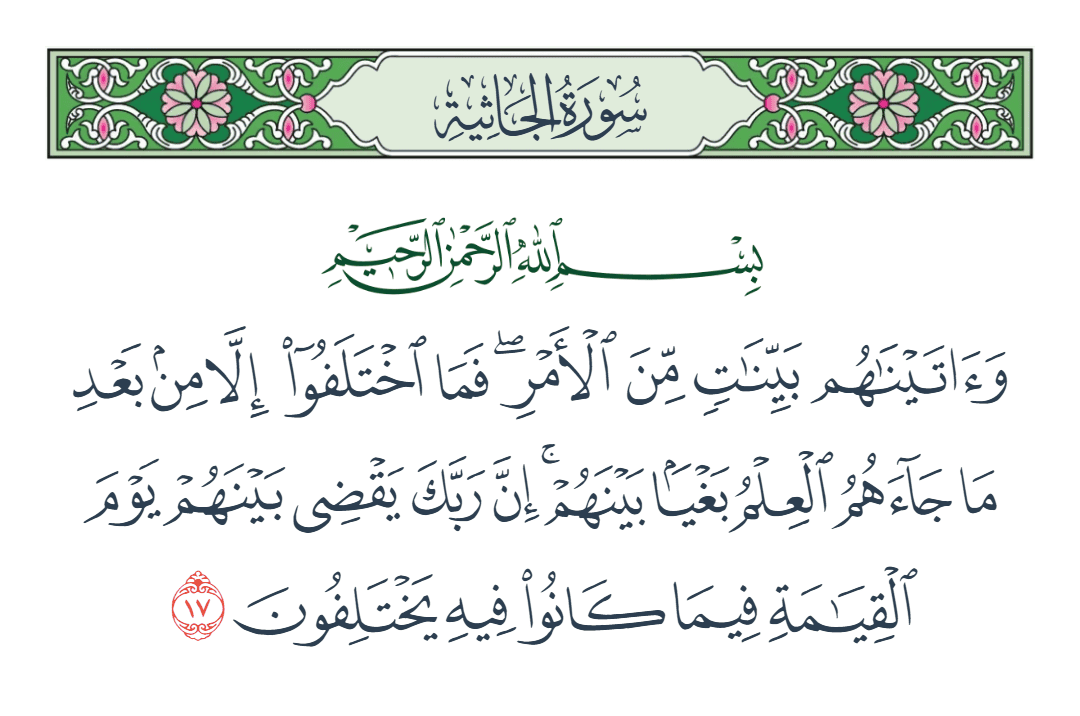 سُورَةُ الجَاثِيَةِ
بِسْمِ ٱللَّهِ ٱلرَّحْمَٰنِ ٱلرَّحِيمِ
وَءَاتَيْنَٰهُم بَيِّنَٰتٍ مِّنَ ٱلْأَمْرِ ۖ فَمَا ٱخْتَلَفُوٓا۟ إِلَّا مِنۢ بَعْدِ
مَا جَآءَهُمُ ٱلْعِلْمُ بَغْيًۢا بَيْنَهُمْ ۚ إِنَّ رَبَّكَ يَقْضِى بَيْنَهُمْ يَوْمَ
ٱلْقِيَٰمَةِ فِيمَا كَانُوا۟ فِيهِ يَخْتَلِفُونَ ١٧